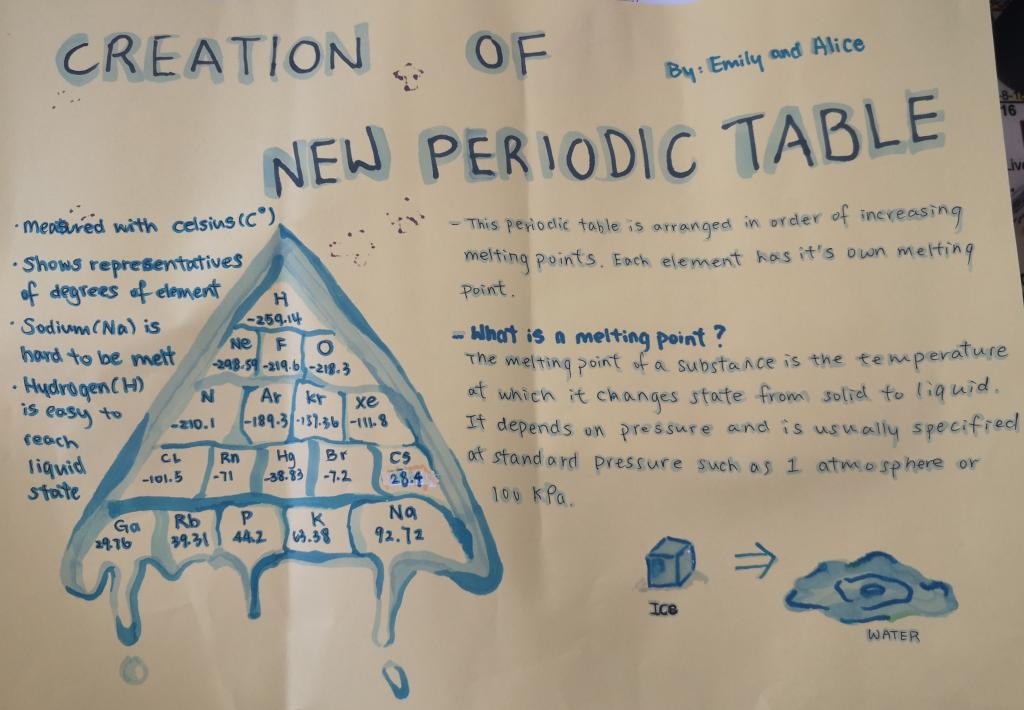 CREATION OF
By: Emily and Alice
NEW PERIODIC TABLE
· measured with celsius (C°)
· Shows representatives
of degrees of element
· Sodium (Na) is
hard to be melt
· Hydrogen (H)
is easy to
reach
liquid
state
H
-259.14
Ne F O
-248.59 -219.6 -218.3
N Ar Kr Xe
-210.1 -189.3 -157.36 -111.8
CL Rn Hg Br Cs
-101.5 -71 -38.83 -7.2 28.4
Ga Rb P K Na
29.76 39.31 44.2 63.38 92.72
- This periodic table is arranged in order of increasing
melting points. Each element has it's own melting
point.
- What is a melting point?
The melting point of a substance is the temperature
at which it changes state from solid to liquid.
It depends on pressure and is usually specified
at standard pressure such as 1 atmosphere or
100 kPa.
Ice
WATER